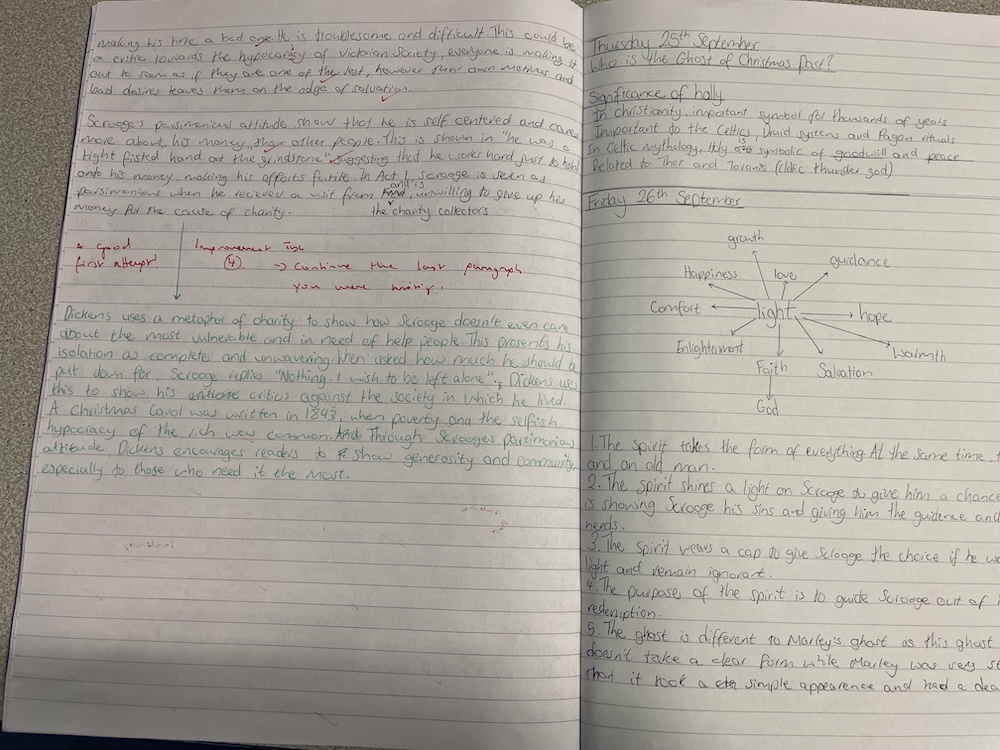 making his time a bad one. He is troublesome and difficult. This could be
a critic towards the hypocaracy of Victorian Society, everyone is making it
out to seem as if they are one of the rest, however their own motives and
bad desires leaves them on the edge of salvation.
Scrooge's parsimonious attitude show that he is self centered and cares
more about his money than other people. This is shown in "he was a
tight fisted hand at the grindstone" suggesting that he works hard just to hold
onto his money, making his efforts futile. In Act 1, scrooge is seen as
parsimonious when he recieved a visit from and is unwilling to give up his
money for the cause of charity. the charity collectors
* good
first attempt!
Improvement Task
④ → Continue the last paragraph
you were writing.
Dickens uses a metaphor of charity to show how Scrooge doesn't even care
about the most vulnerable and in need of help people. This presents his
isolation as complete and unwavering. When asked how much he should be
put down for, Scrooge replies "Nothing. I wish to be left alone". Dickens uses
this to show his critics against the society in which he lived.
A Christmas Carol was written in 1843, when poverty and the selfish
hypocracy of the rich was common. Through Scrooges parsimonious
attitude Dickens encourages readers to show generosity and community,
especially to those who need it the most.
Thursday 25th September
Who is the Ghost of Christmas Past?
Significance of holly
In christianity, important symbol for thousands of years
Important to the Celtics, Druid systems and Pagan rituals
In Celtic mythology, Holy is symbolic of goodwill and peace
Related to Thor and Taranis (Celtic thunder god)
Friday 26th September
growth
Happiness
love
guidance
Comfort
light
hope
Enlightenment
Faith
Salvation
Warmth
God
1. The spirit takes the form of everything. At the same time
and an old man.
2. The spirit shines a light on Scrooge to give him a chance
is showing Scrooge his sins and giving him the guidence and
needs.
3. The spirit wears a cap to give Scrooge the choice if he
light and remain ignorant.
4. The purpose of the spirit is to guide Scrooge out of
redemption.
5. The ghost is different to Marley's ghost as this ghost
doesn't take a clear form while Marley was very
that it took a simple appearence and had a